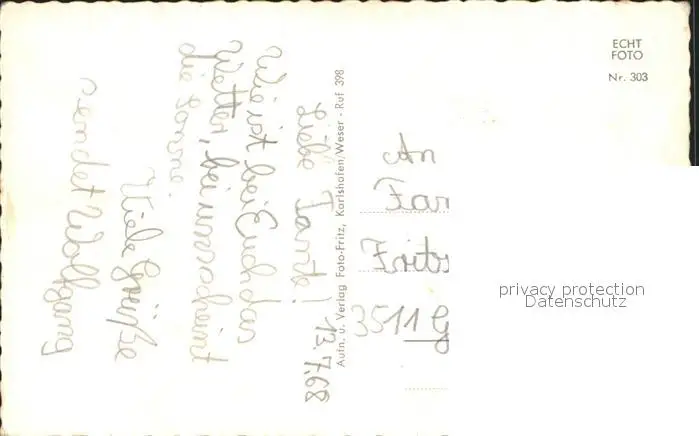 Liebe Tante! 13.7.68
Wie ist bei Euch das
Wetter, bei uns scheint
die Sonne.
Viele Grüße
sendet Wolfgang
Aufn. u. Verlag Foto-Fritz, Karlshafen/Weser - Ruf 398
ECHT
FOTO
Nr. 303
An
Fam
Fritz
3511 G
privacy protection
Datenschutz